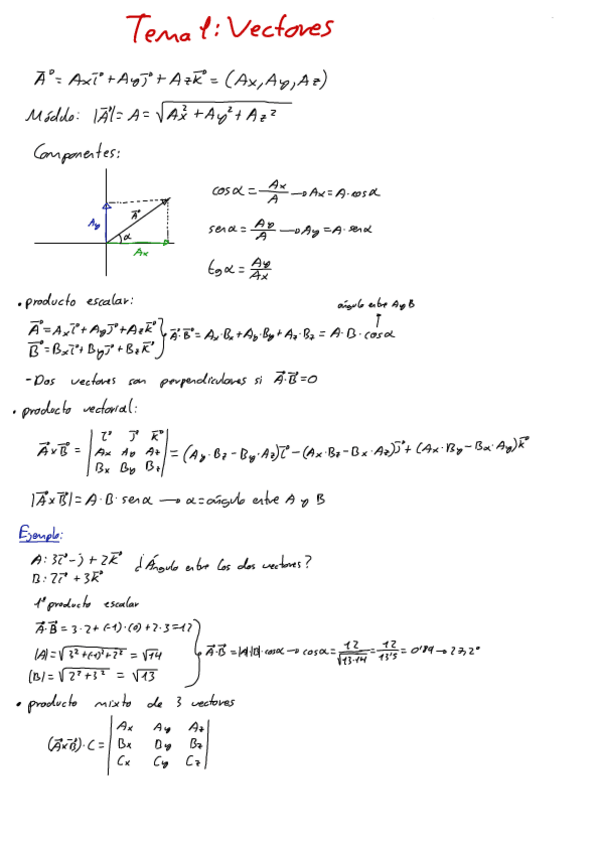 Tema 1: Vectores
A⃗ = Axi⃗ + Ayj⃗ + Azk⃗ = (Ax, Ay, Az)
Módulo: |A⃗| = A = √(Ax² + Ay² + Az²)
Componentes:
cosα = Ax/A → Ax = A·cosα
Ay A⃗ α Ax
senα = Ay/A → Ay = A·senα
tgα = Ay/Ax
• producto escalar:
ángulo entre A y B
A⃗ = Axi⃗ + Ayj⃗ + Azk⃗
B⃗ = Bxi⃗ + Byj⃗ + Bzk⃗ } A⃗·B⃗ = Ax·Bx + Ay·By + Az·Bz = A·B·cosα
- Dos vectores son perpendiculares si A⃗·B⃗ = 0
• producto vectorial:
A⃗xB⃗ = | i⃗ j⃗ k⃗ |
| Ax Ay Az | = (Ay·Bz - By·Az)i⃗ - (Ax·Bz - Bx·Az)j⃗ + (Ax·By - Bx·Ay)k⃗
| Bx By Bz |
|A⃗xB⃗| = A·B·senα → α = ángulo entre A y B
Ejemplo:
A: 3i⃗ - j + 2k⃗ ¿Ángulo entre los dos vectores?
B: 2i⃗ + 3k⃗
1º producto escalar
A⃗·B⃗ = 3·2 + (-1)·(0) + 2·3 = 12
|A| = √(3² + (-1)² + 2²) = √14 } A⃗·B⃗ = |A|·|B|·cosα → cosα = 12/√(13·14) = 12/13'5 = 0'89 → 27,2°
|B| = √(2² + 3²) = √13
• producto mixto de 3 vectores
(A⃗xB⃗)·C = | Ax Ay Az |
| Bx By Bz |
| Cx Cy Cz |